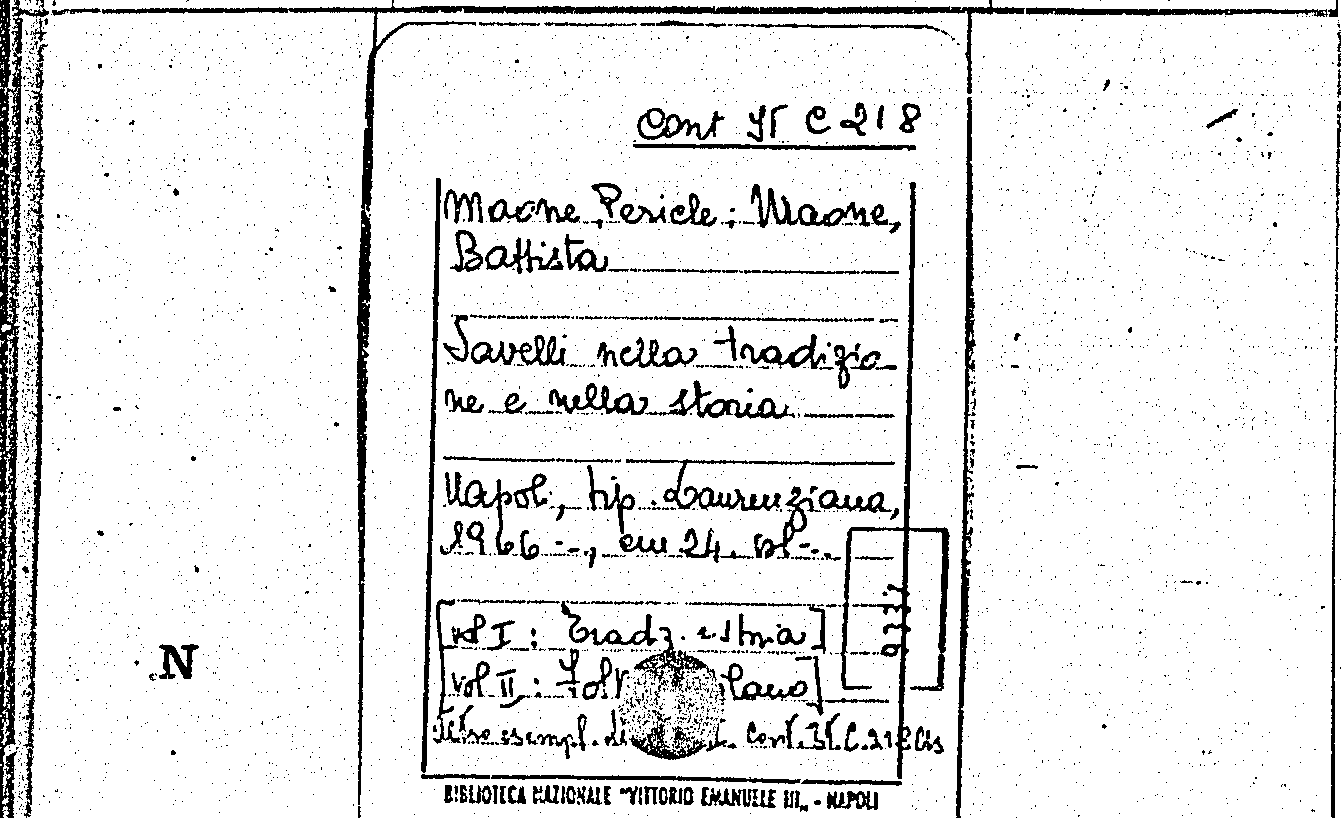 Cont. C 218
Maone, Pericle: Maone,
Battista
Savelli nella tradizio-
ne e nella storia
Napoli, tip. Laurenziana,
1966 -, cm 24. vol -.
[vol I: Tradz. e storia]
[vol II: Fol lano]
Altro esempl. Cont. C. 218 bis
9237
N
BIBLIOTECA NAZIONALE "VITTORIO EMANUELE III„ - NAPOLI